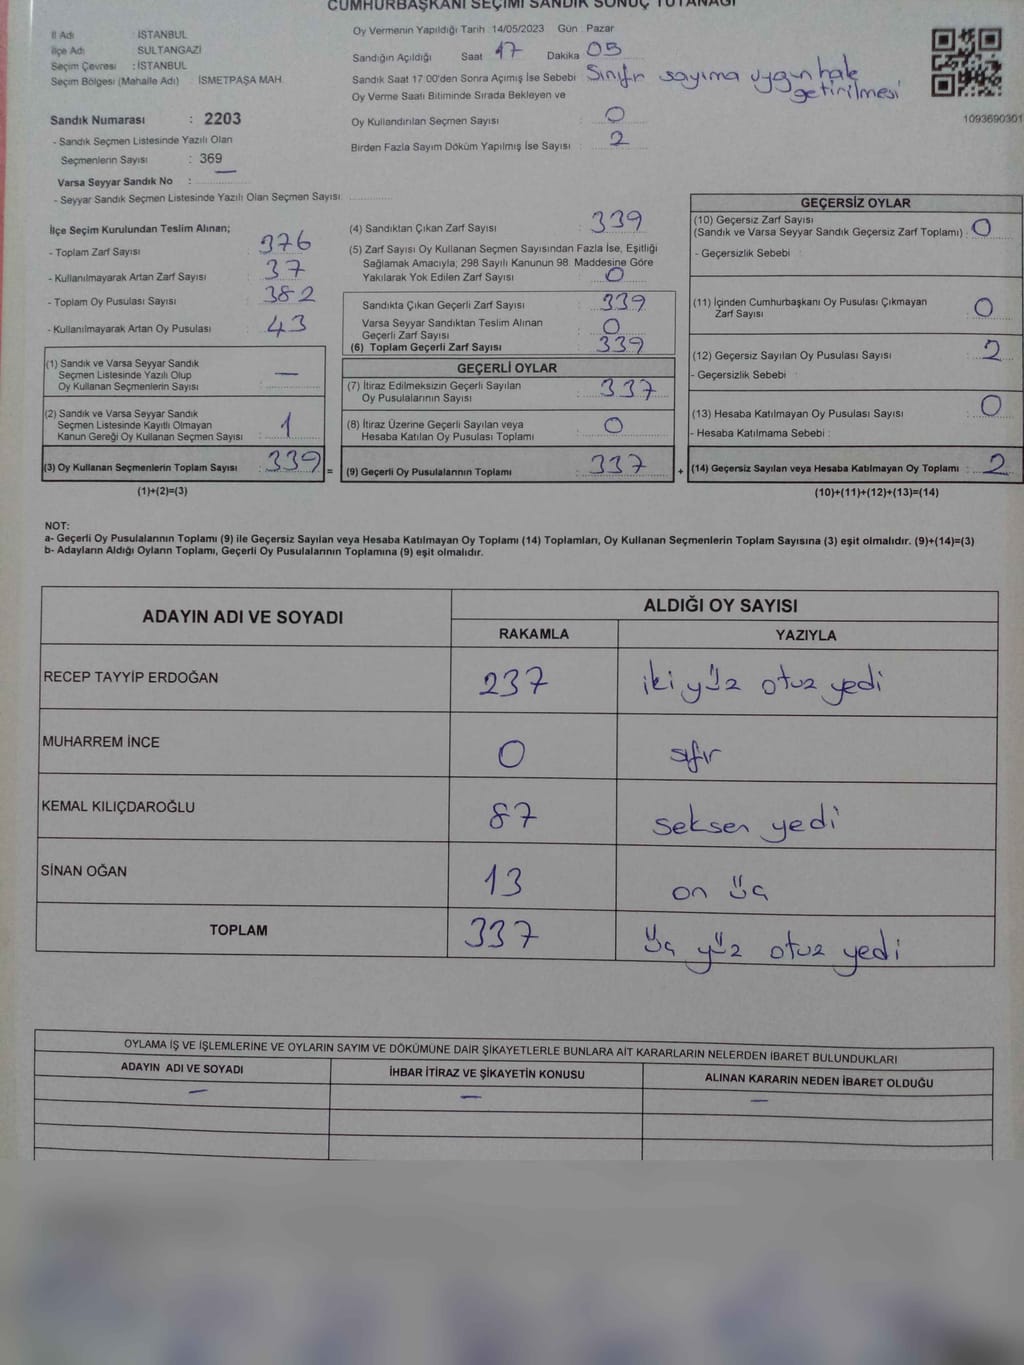 CUMHURBAŞKANI SEÇİMİ SANDIK SONUÇ TUTANAĞI
İl Adı : İSTANBUL
İlçe Adı : SULTANGAZİ
Seçim Çevresi : İSTANBUL
Seçim Bölgesi (Mahalle Adı) : İSMETPAŞA MAH.
Oy Vermenin Yapıldığı Tarih 14/05/2023 Gün : Pazar
Sandığın Açıldığı Saat 17 Dakika 05
Sandık Saat 17:00'den Sonra Açımış İse Sebebi : Sınıfın sayıma uygun hale getirilmesi
Oy Verme Saati Bitiminde Sırada Bekleyen ve
Oy Kullandırılan Seçmen Sayısı : 0
Birden Fazla Sayım Döküm Yapılmış İse Sayısı : 2
1093690301
Sandık Numarası : 2203
- Sandık Seçmen Listesinde Yazılı Olan
Seçmenlerin Sayısı : 369
Varsa Seyyar Sandık No : —
- Seyyar Sandık Seçmen Listesinde Yazılı Olan Seçmen Sayısı:
İlçe Seçim Kurulundan Teslim Alınan;
- Toplam Zarf Sayısı : 376
- Kullanılmayarak Artan Zarf Sayısı : 37
- Toplam Oy Pusulası Sayısı : 382
- Kullanılmayarak Artan Oy Pusulası : 43
(1) Sandık ve Varsa Seyyar Sandık
Seçmen Listesinde Yazılı Olup
Oy Kullanan Seçmenlerin Sayısı : —
(2) Sandık ve Varsa Seyyar Sandık
Seçmen Listesinde Kayıtlı Olmayan
Kanun Gereği Oy Kullanan Seçmen Sayısı : 1
(3) Oy Kullanan Seçmenlerin Toplam Sayısı : 339 =
(1)+(2)=(3)
(4) Sandıktan Çıkan Zarf Sayısı : 339
(5) Zarf Sayısı Oy Kullanan Seçmen Sayısından Fazla İse, Eşitliği
Sağlamak Amacıyla; 298 Sayılı Kanunun 98. Maddesine Göre
Yakılarak Yok Edilen Zarf Sayısı : 0
Sandıkta Çıkan Geçerli Zarf Sayısı : 339
Varsa Seyyar Sandıktan Teslim Alınan
Geçerli Zarf Sayısı : 0
(6) Toplam Geçerli Zarf Sayısı : 339
GEÇERLİ OYLAR
(7) İtiraz Edilmeksizin Geçerli Sayılan
Oy Pusulalarının Sayısı : 337
(8) İtiraz Üzerine Geçerli Sayılan veya
Hesaba Katılan Oy Pusulası Toplamı : 0
(9) Geçerli Oy Pusulalarının Toplamı : 337 +
GEÇERSİZ OYLAR
(10) Geçersiz Zarf Sayısı
(Sandık ve Varsa Seyyar Sandık Geçersiz Zarf Toplamı) : 0
- Geçersizlik Sebebi :
(11) İçinden Cumhurbaşkanı Oy Pusulası Çıkmayan
Zarf Sayısı : 0
(12) Geçersiz Sayılan Oy Pusulası Sayısı : 2
- Geçersizlik Sebebi :
(13) Hesaba Katılmayan Oy Pusulası Sayısı : 0
- Hesaba Katılmama Sebebi :
(14) Geçersiz Sayılan veya Hesaba Katılmayan Oy Toplamı : 2
(10)+(11)+(12)+(13)=(14)
NOT:
a- Geçerli Oy Pusulalarının Toplamı (9) ile Geçersiz Sayılan veya Hesaba Katılmayan Oy Toplamı (14) Toplamları, Oy Kullanan Seçmenlerin Toplam Sayısına (3) eşit olmalıdır. (9)+(14)=(3)
b- Adayların Aldığı Oyların Toplamı, Geçerli Oy Pusulalarının Toplamına (9) eşit olmalıdır.
ADAYIN ADI VE SOYADI ALDIĞI OY SAYISI
RAKAMLA YAZIYLA
RECEP TAYYİP ERDOĞAN 237 iki yüz otuz yedi
MUHARREM İNCE 0 sıfır
KEMAL KILIÇDAROĞLU 87 seksen yedi
SİNAN OĞAN 13 on üç
TOPLAM 337 üç yüz otuz yedi
OYLAMA İŞ VE İŞLEMLERİNE VE OYLARIN SAYIM VE DÖKÜMÜNE DAİR ŞİKAYETLERLE BUNLARA AİT KARARLARIN NELERDEN İBARET BULUNDUKLARI
ADAYIN ADI VE SOYADI İHBAR İTİRAZ VE ŞİKAYETİN KONUSU ALINAN KARARIN NEDEN İBARET OLDUĞU
— — —